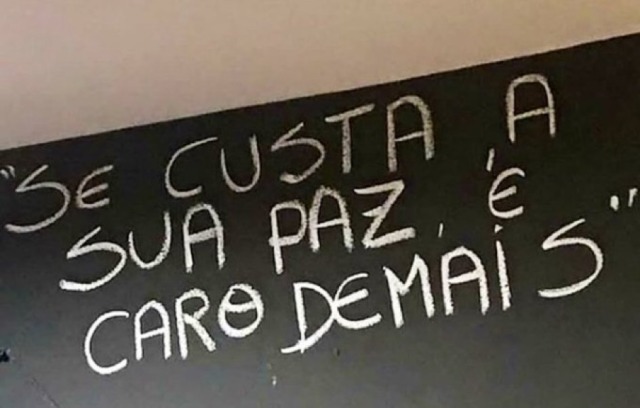 "SE CUSTA A
SUA PAZ, É
CARO DEMAIS"